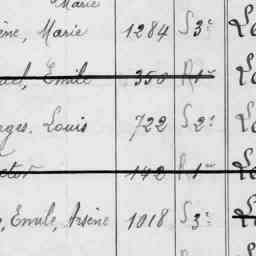 Marie
ène, Marie 1284 S 3e Lé
ael, Emile 350 R 1re Lé
rges. Louis 722 S 2e Lé
ctor 142 R 1re Lé
, Emile, Arsène 1018 S 3e Lé